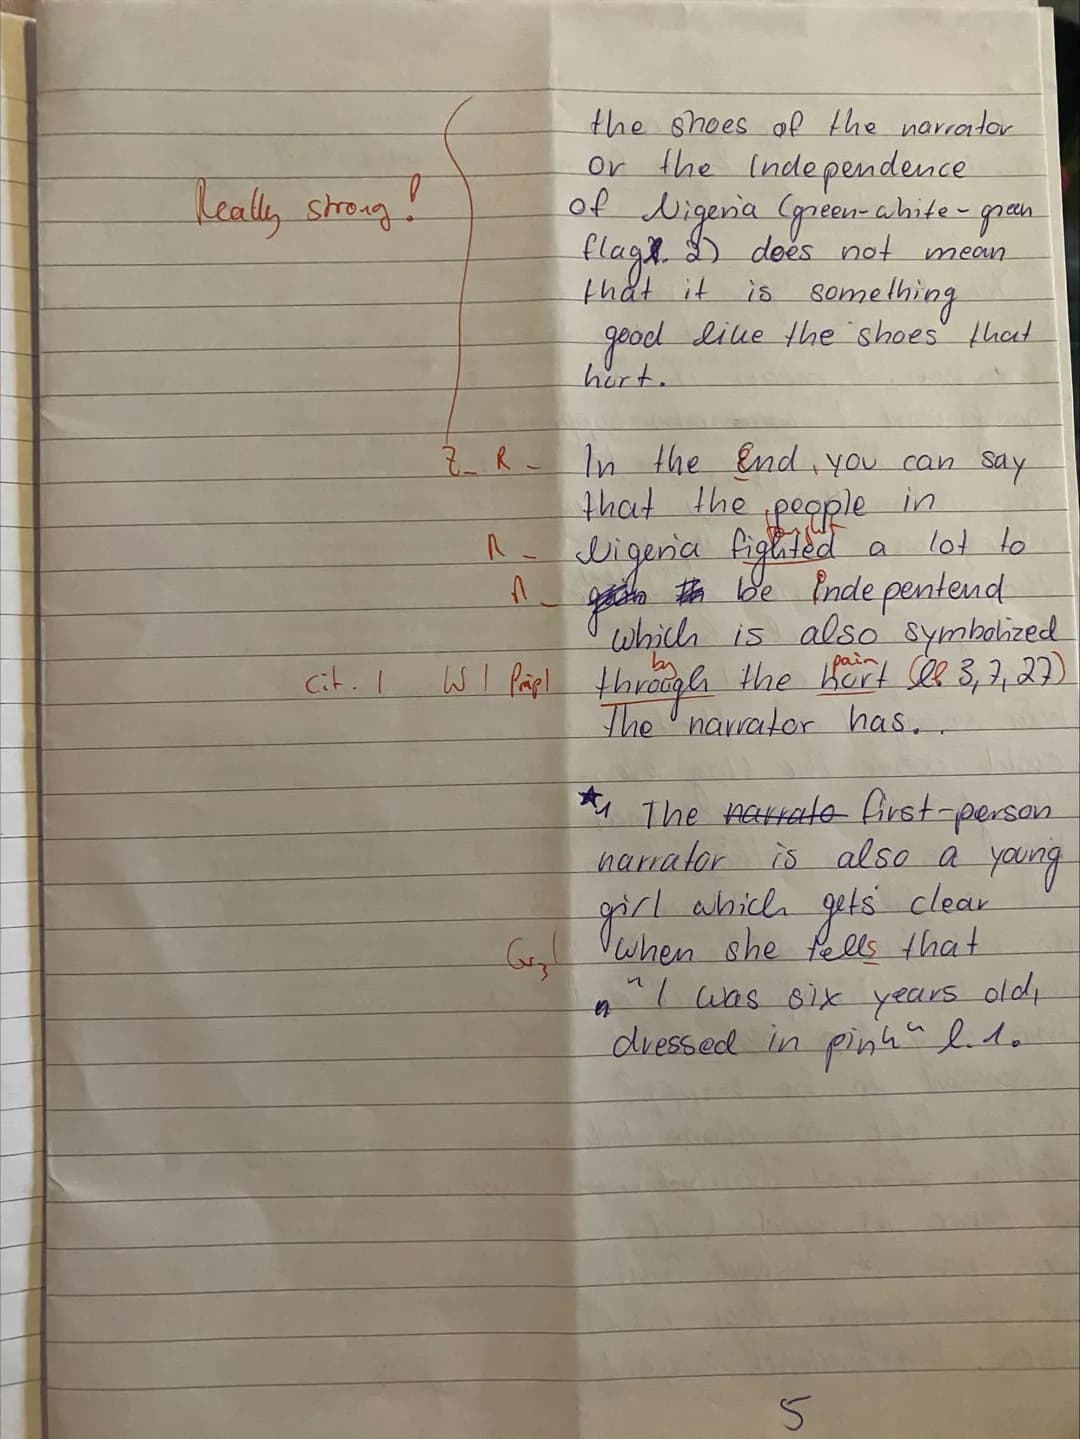 the shoes of the narrator
or the Independence
Really strong!
of Nigeria (green-white-green
flag l. 2) does not mean
that it is something
good like the shoes that
hurt.
Z_ R_ In the End, you can say
that the people in
R_ Nigeria fighted a lot to
R_ be independend
which is also symbolized
by pain
Cit. | W | Präp| through the hurt (ll 3, 7, 27)
the narrator has..
*1 The narrato first-person
narrator is also a young
girl which gets clear
Gr3! when she tells that
"I was six years old,
dressed in pink" l. 1.
5